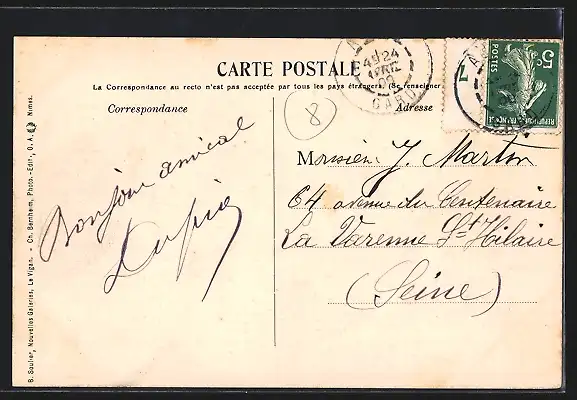 CARTE POSTALE
La Correspondance au recto n'est pas acceptée par tous les pays étrangers. (Se renseigner
Correspondance
Adresse
8
Bonjour amical
Monsieur J. Martin
64 avenue du Centenaire
La Varenne St Hilaire
(Seine)
B. Saulier, Nouvelles Galeries, Le Vigan. - Ch. Bernheim, Photo.-Edit., G. A. Nimes.
24
AVRIL
09
GARD
5c
POSTES
REPUBLIQUE FRANCAISE